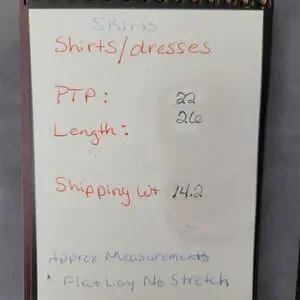 Skirts
Shirts/dresses
PTP: 22
Length: 26
Shipping wt 14.2
Approx Measurements
Flat Lay No Stretch